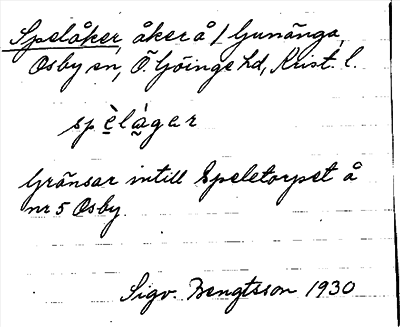 Spelåker, åker å 1 Gunänga,
Osby sn, Ö. Göinge hd, Krist. l.
spèlågar
Gränsar intill Speletorpet å
nr 5 Osby.
Sigv. Bengtsson 1930